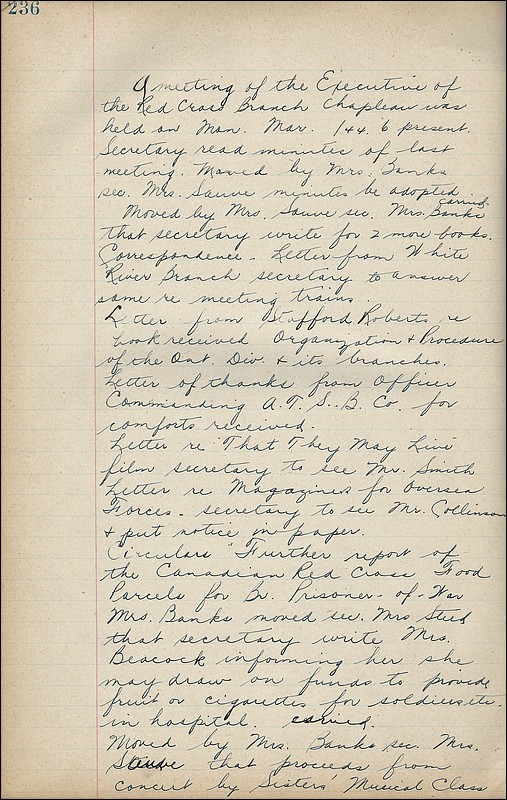 236
A meeting of the Executive of
the Red Cross Branch Chapleau was
held on Mon. Mar. 1 44. 6 present.
Secretary read minutes of last
meeting. Moved by Mrs. Banks
sec. Mrs. Sauve minutes be adopted
carried.
Moved by Mrs. Sauve sec. Mrs. Banks
that secretary write for 2 more books.
Correspondence - Letter from White
River Branch secretary to answer
same re meeting trains.
Letter from Stafford Roberts re
book received Organization & Procedure
of the Ont. Div. & its branches.
Letter of thanks from Officer
Commanding A.T.S.-B. Co. for
comforts received.
Letter re "That They May Live
film secretary to see Mr. Smith
Letter re Magazines for Oversea
Forces - secretary to see Mr. Collinson
& put notice in paper.
Circulars "Further report of
the Canadian Red Cross Food
Parcels for Br. Prisoner-of-War
Mrs. Banks moved sec. Mrs Steed
that secretary write Mrs.
Beacock informing her she
may draw on funds to provide
fruit or cigarettes for soldiers etc.
in hospital. carried.
Moved by Mrs. Banks sec. Mrs.
that proceeds from
concert by Sisters' Musical Class